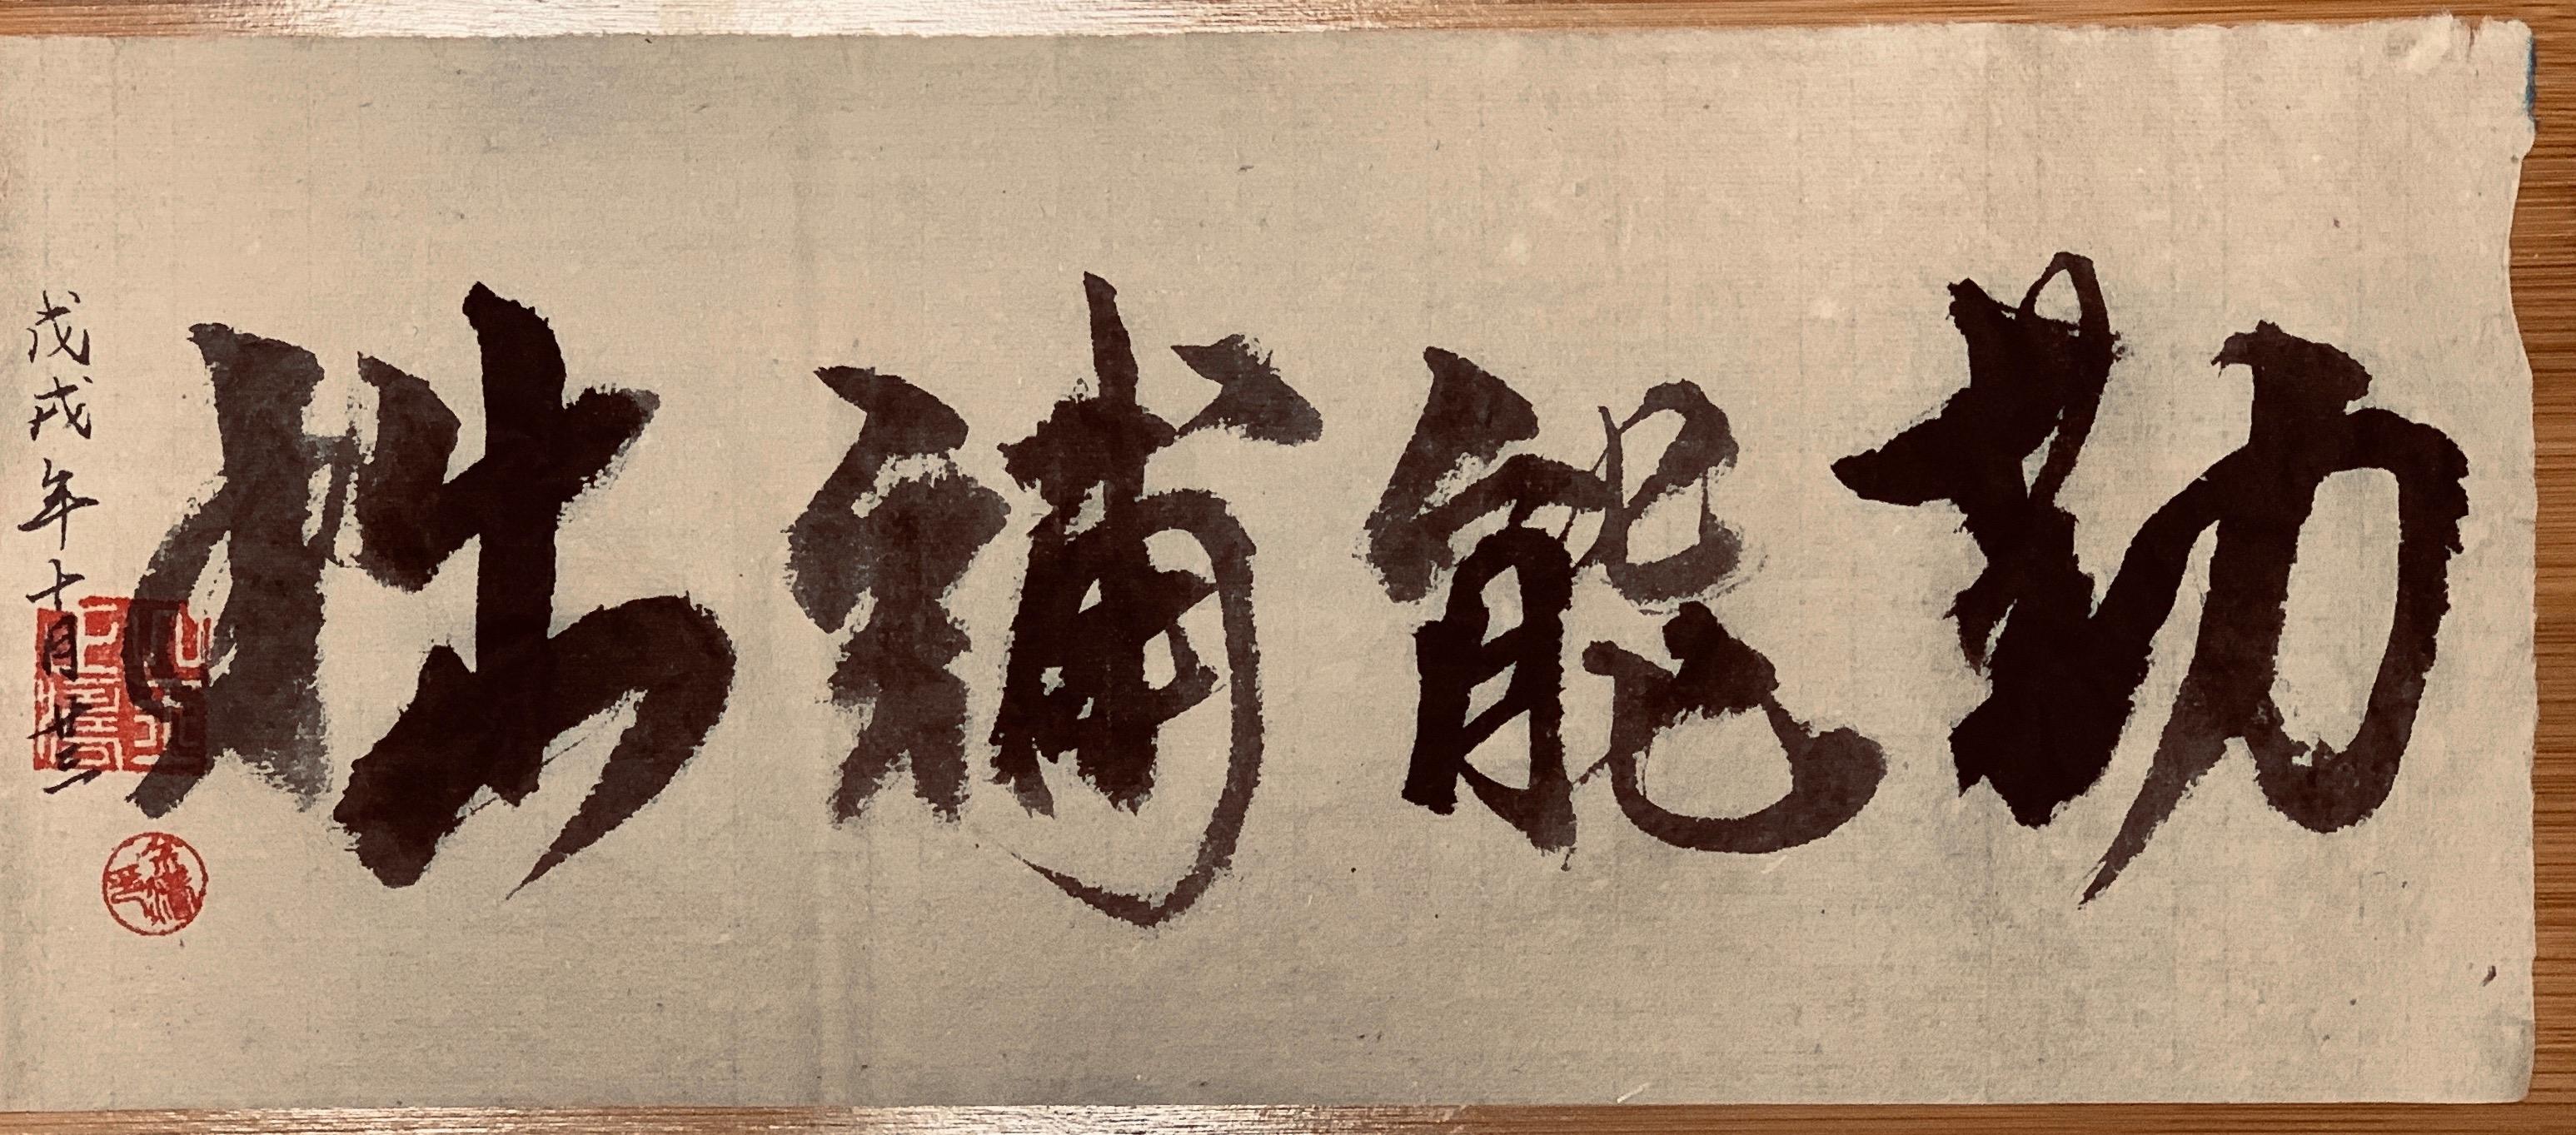 勤能補拙
戊戌年十月廿三